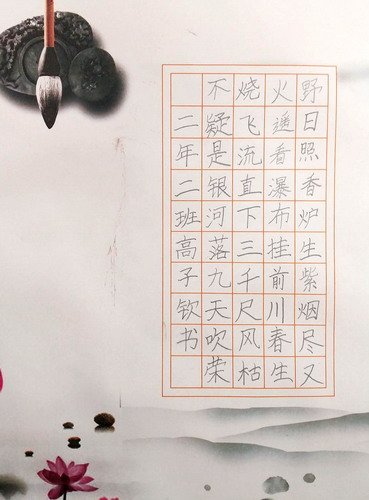 野日照香炉生紫烟尽又
火遥看瀑布挂前川春生
烧飞流直下三千尺风枯
不疑是银河落九天吹荣
二年二班高子钦书